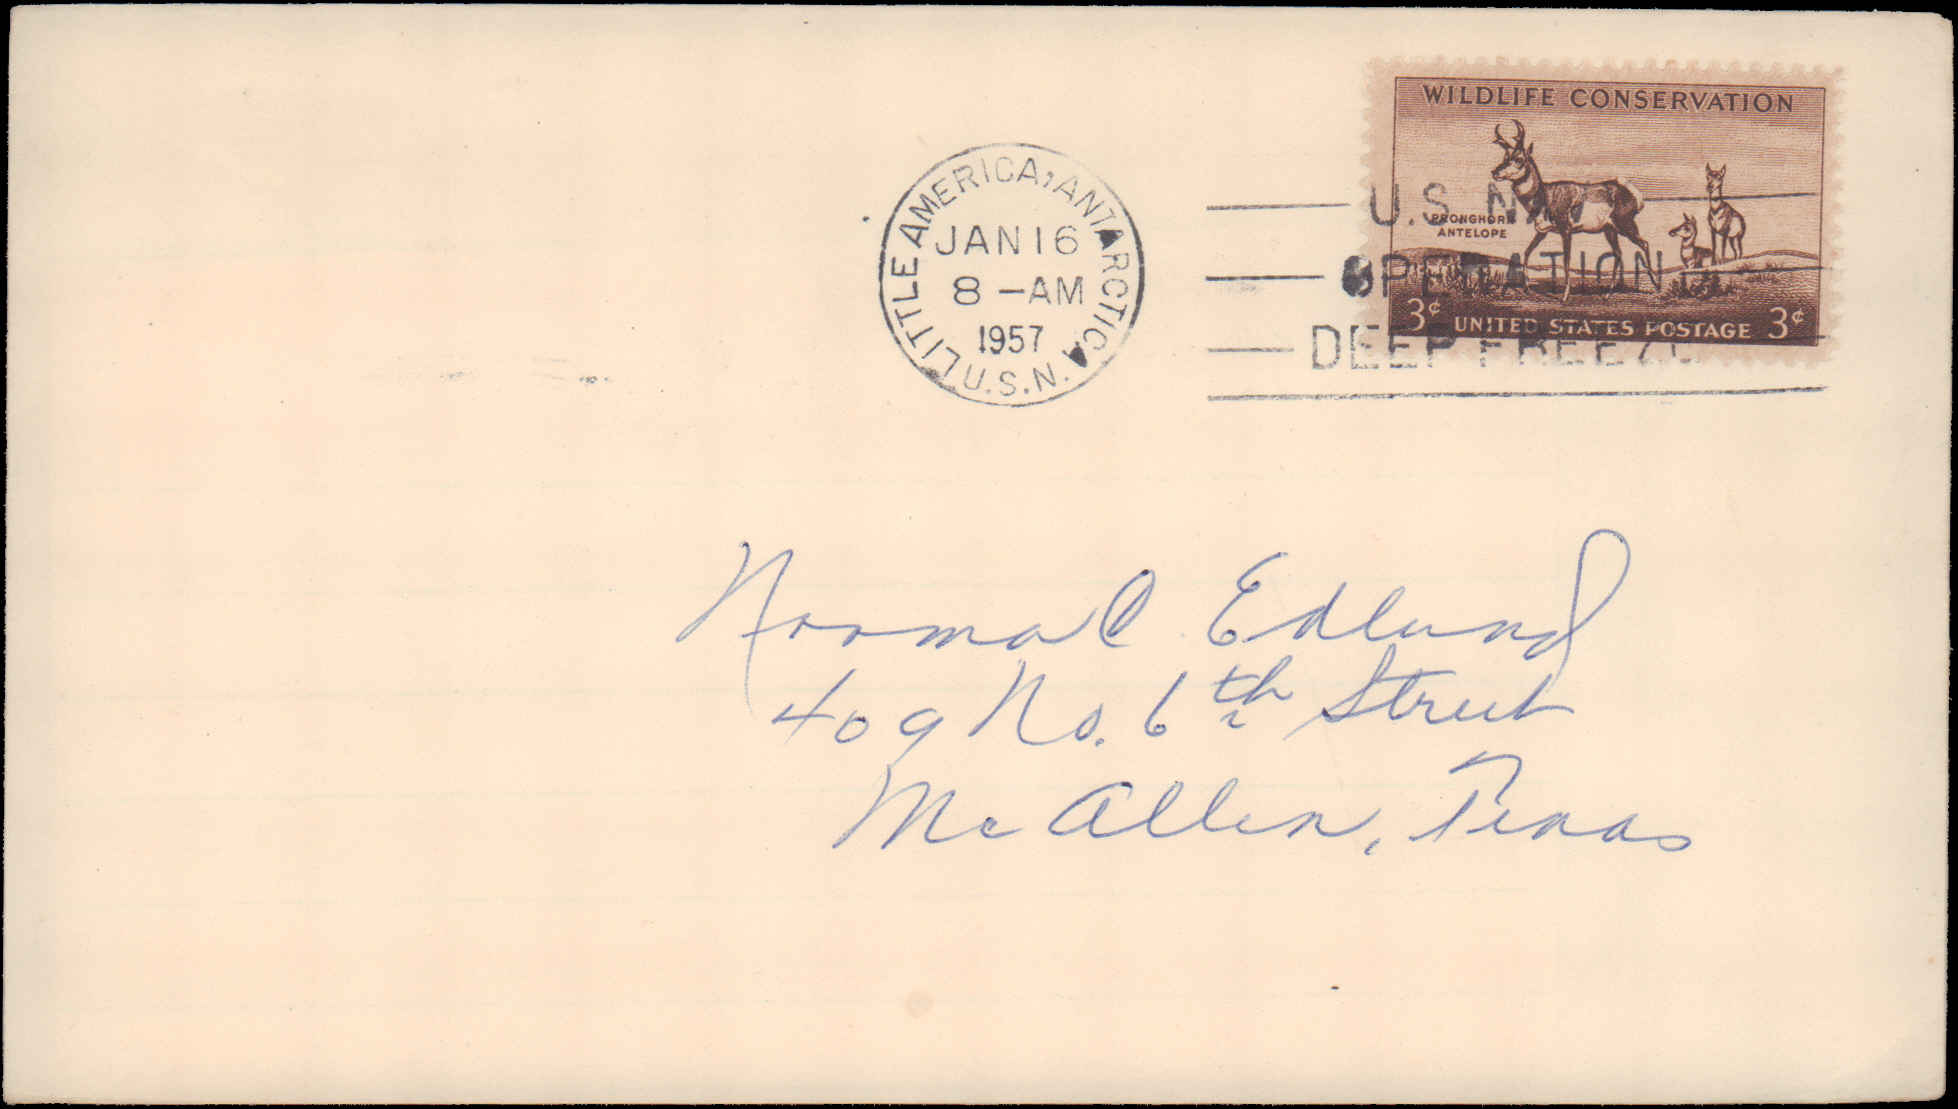 WILDLIFE CONSERVATION
PRONGHORN
ANTELOPE
3¢ UNITED STATES POSTAGE 3¢
LITTLE AMERICA, ANTARCTICA
U.S.N.
JAN 16
8 – AM
1957
U.S. NAVY
OPERATION
DEEP FREEZE
Norma C Edlund
409 No. 6th Street
McAllen, Texas